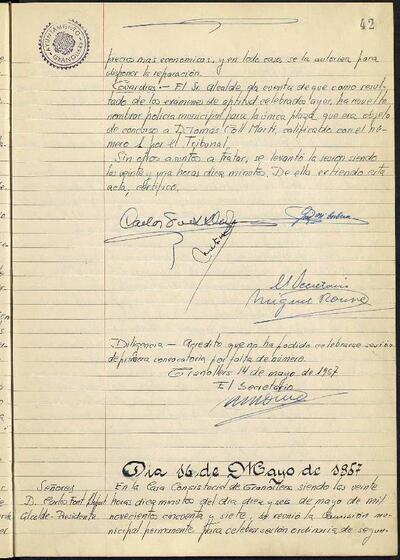 42
AYUNTAMIENTO
precios mas economicos, y en todo caso, se la autoriza para
disponer la reparación.
Guardias.- El Sr. Alcalde da cuenta de que como resul-
tado de los examenes de aptitud celebrados ayer, ha resuelto
nombrar policia municipal para la única plaza que era objeto
de concurso a D. Tomas Coll Marti, calificado con el nú-
mero 1 por el Tribunal.
Sin otros asuntos a tratar, se levantó la sesión siendo
las veinte y una horas diez minutos. De ella extiendo esta
acta, certifico.
Carlos
El Secretario
Miguel
Diligencia - Acredito que no ha podido celebrarse sesión
de primera convocatoria por falta de número.
Granollers 14 de mayo de 1957
El Secretario
Dia 16 de Mayo de 1957
Señores
D. Carlos Font Llopart
Alcalde-Presidente
En la Casa Consistorial de Granollers siendo las veinte
horas diez minutos del dia diez y seis de mayo de mil
novecientos cincuenta y siete, se reunió la Comisión mu-
nicipal permanente para celebrar sesión ordinaria de segun-